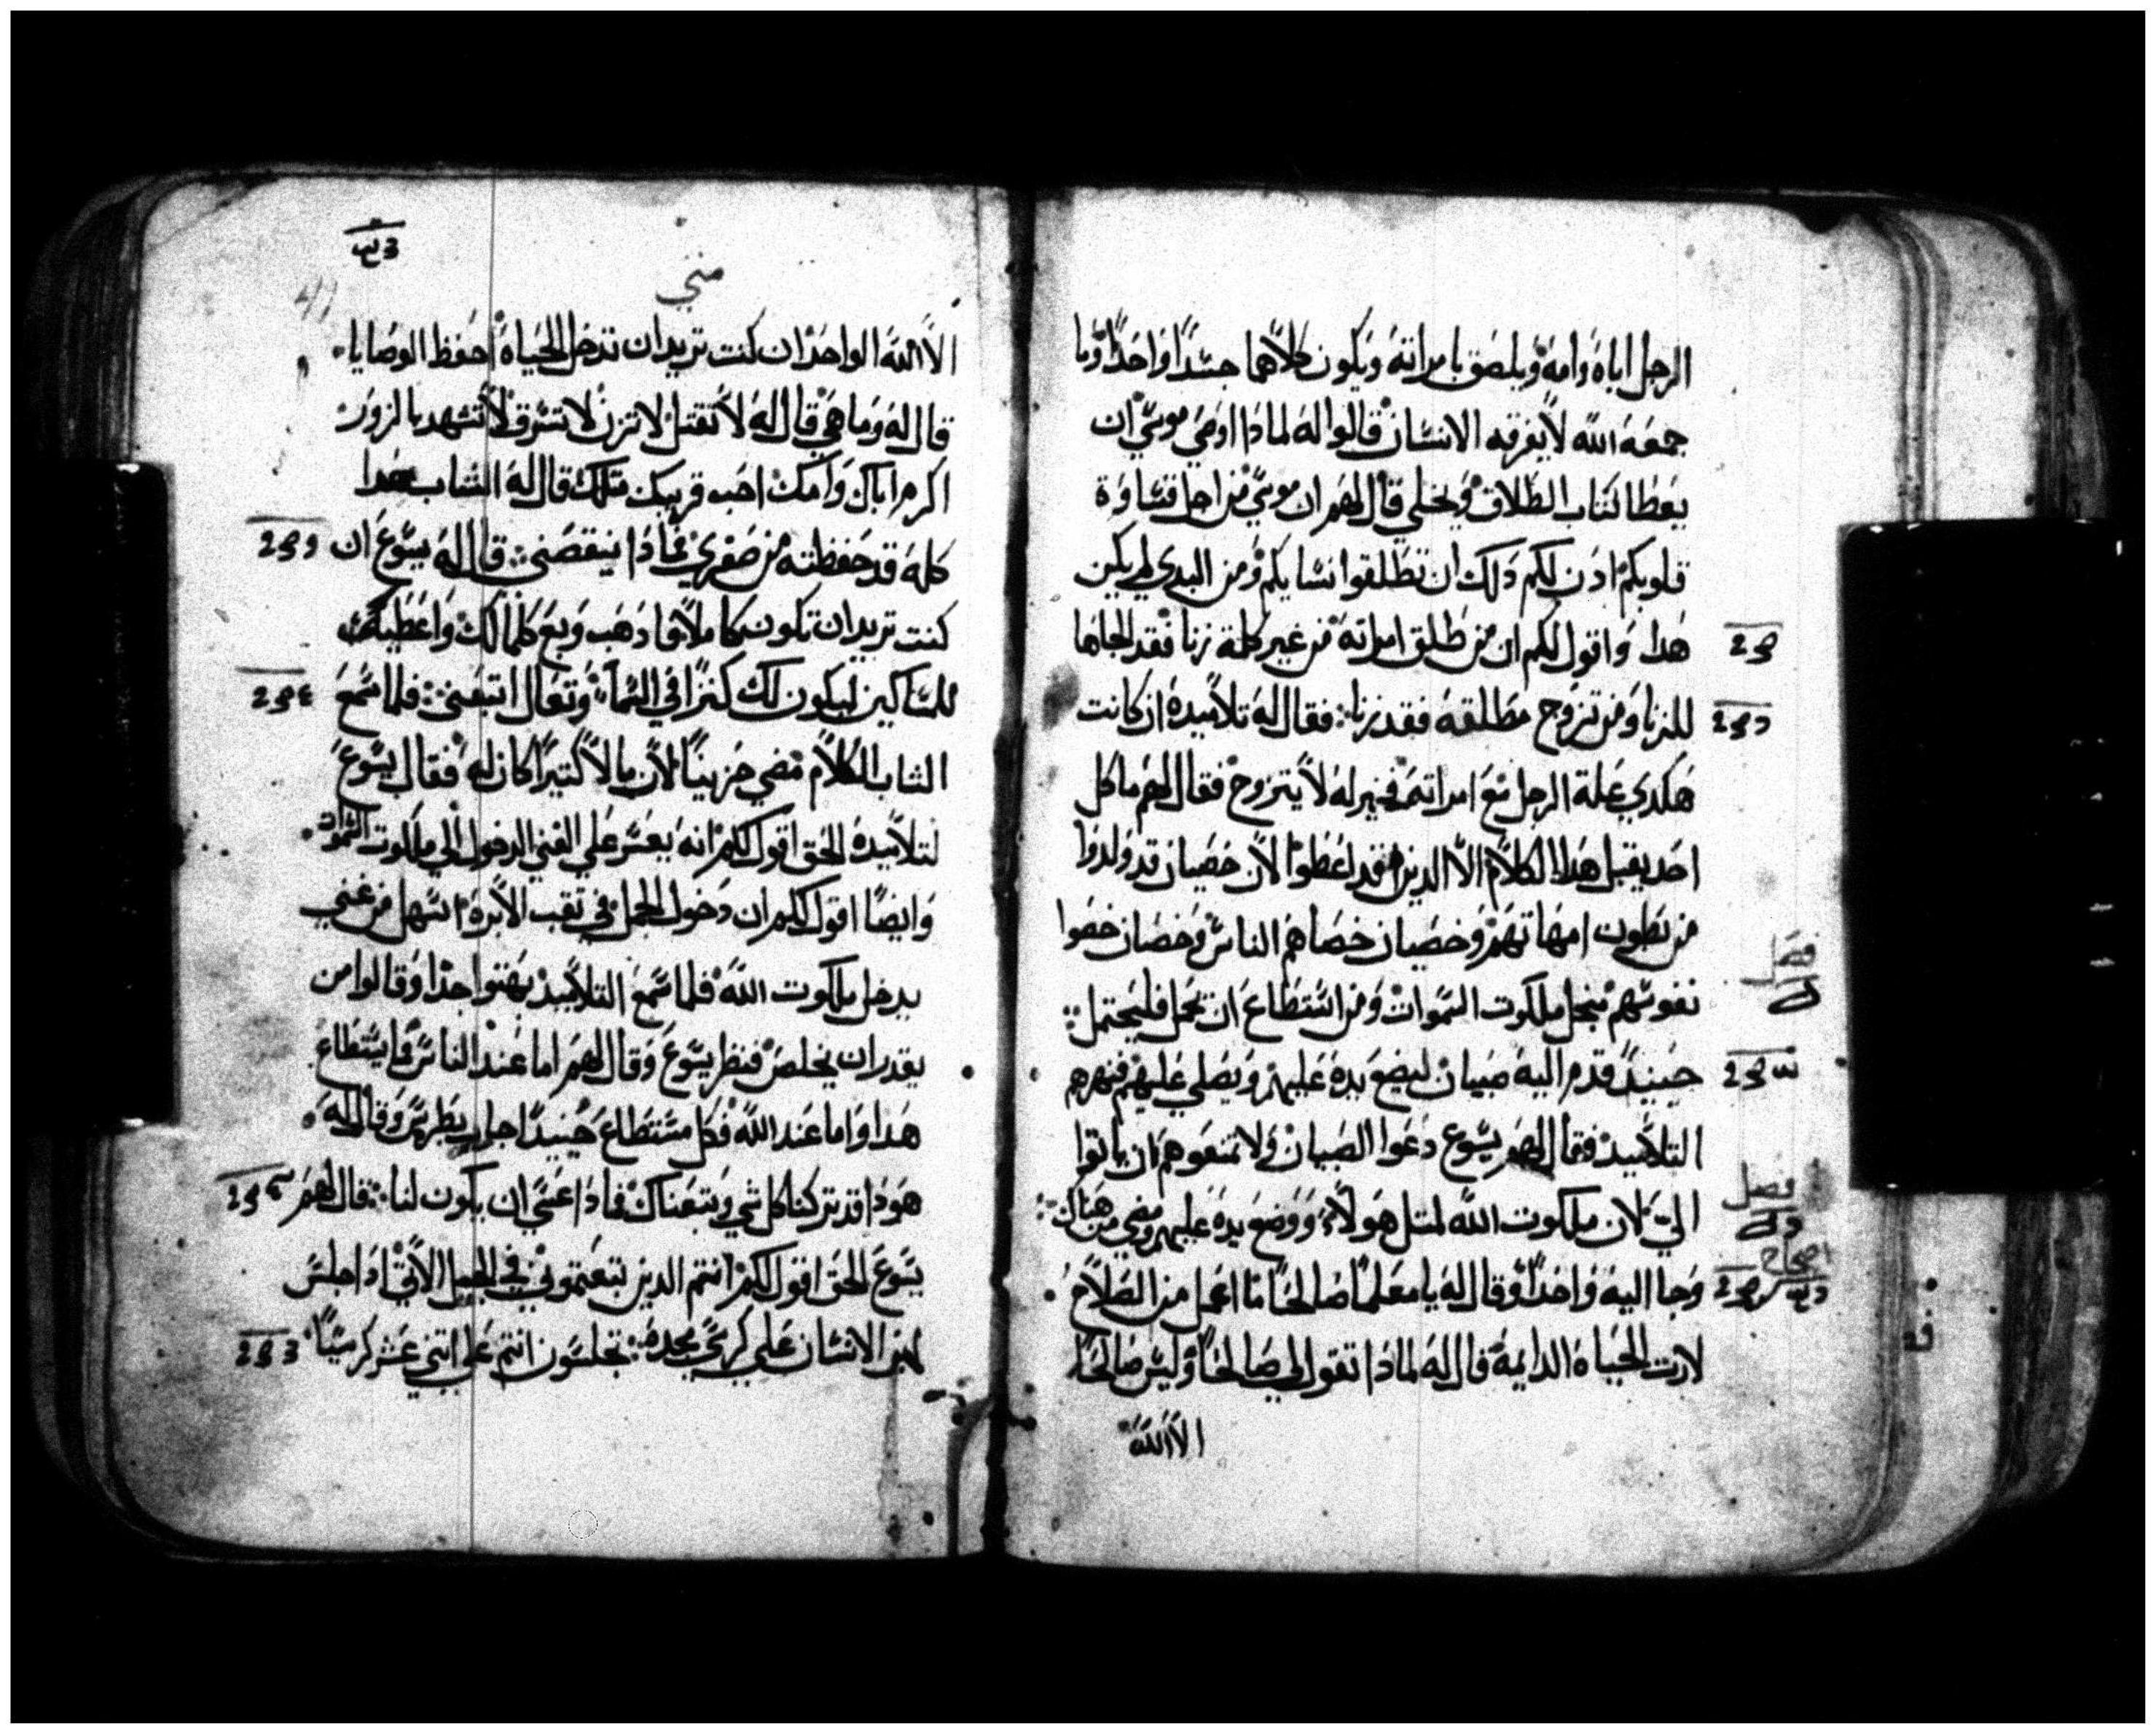 الرجل اباه وامه ويلصق بامراته ويكون كلاهما جسدا واحدا وما
جمعه الله لا يفرقه الانسان قالوا له لمادا اوصي موسي ان
يعطا كتاب الطلاق ويخلي قال لهم ان موسي من اجل قساوة
قلوبكم ادن لكم دلك ان تطلقوا نسايكم ومن البدي لم يكن
هدا واقول لكم ان من طلق امراته من غير كلمة زنا فقد الجاها
للزنا ومن تزوج مطلقه فقد زنا فقال له تلاميده ان كانت
هكدي علة الرجل مع امراته فخير له لا يتزوج فقال لهم ما كل
احد يقبل هدا الكلام الا الدين قد اعطوا لان خصيان قد ولدوا
من بطون امهاتهم وخصيان خصاهم الناس وخصيان خصوا
فصل
نفوسهم من اجل ملكوت السموات ومن استطاع ان يحمل فليحتمل
حينيد قدم اليه صبيان ليضع يده عليهم ويصلي عليهم فنهرهم
التلاميد فقال لهم يسوع دعوا الصبيان ولا تمنعوهم ان ياتوا
فصل
الي لان ملكوت الله لمتل هولاء ووضع يده عليهم ومضي من هناك
اصحاح
وجا اليه واحدا وقال له يا معلما صالحا ما اعمل من الصلاح
لارت الحياه الدايمة قال له لمادا تقول لي صالحا وليس صالحا
الا الله
متي
الا الله الواحد ان كنت تريد ان تدخل الحياه احفظ الوصايا
قال له وما هي قال له لا تقتل لا تزن لا تسرق لا تشهد بالزور
اكرم اباك وامك احب قريبك متلك قال له الشاب هدا
كله قد حفظته من صغري فمادا ينقصني قال له يسوع ان
كنت تريد ان تكون كاملا فادهب وبع كلما لك واعطيه
للمساكين ليكون لك كنزا في السما وتعال اتبعني فلما سمع
الشاب الكلام مضي حزينا لان مالا كتيرا كان له فقال يسوع
لتلاميده الحق اقول لكم انه يعسر علي الغني الدخول الي ملكوت السموات
وايضا اقول لكم ان دخول الجمل في تقب الابرة اسهل من غني
يدخل ملكوت الله فلما سمع التلاميد بهتوا جدا وقالوا من
يقدر ان يخلص فنظر يسوع وقال لهم اما عند الناس فما يستطاع
هدا واما عند الله فكل مستطاع حينيدا اجاب بطرس وقال له
هودا قد تركنا كل شي وتبعناك فمادا عسي ان يكون لنا قال لهم
يسوع الحق اقول لكم انتم الدين تبعتموني في الجيل الاتي ادا جلس
ابن الانسان علي كرسي مجده تجلسون انتم علي اتني عشر كرسيا